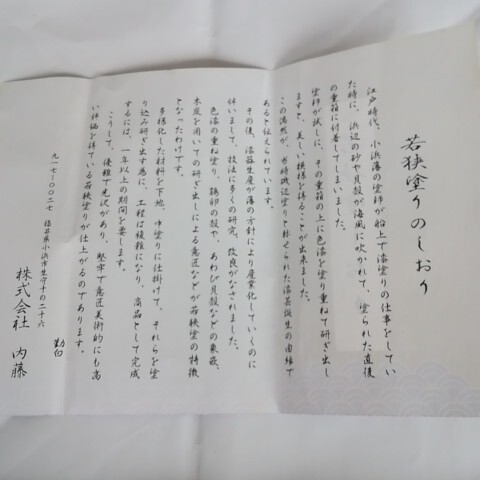 若狭塗りのしおり
江戸時代、小浜藩の塗師が船上で漆塗りの仕事をしてい
た時に、浜辺の砂や貝殻が海風に吹かれて、塗られた直後
の重箱に付着してしまいました。
塗師が試しに、その重箱の上に色漆を塗り重ねて研ぎ出し
ますと、美しい模様を得ることが出来ました。
この偶然が、当時磯辺塗りと称せられた漆器誕生の由縁で
あると伝えられています。
その後、漆器生産が藩の方針により産業化していくのに
伴いまして、技法に多くの研究、改良がなされました。
色漆の重ね塗り、鶏卵の殻や、あわび貝殻などの象嵌、
木炭を用いての研ぎ出しによる意匠などが若狭塗の特徴
となったわけです。
多様化した材料を下地、中塗りに仕掛けて、それらを塗
り込み研ぎ出す為に、工程は複雑になり、商品として完成
するには、一年以上の期間を要します。
こうして、優雅で光沢があり、堅牢で意匠美術的にも高
い評価を得ている若狭塗りが仕上がるのであります。
勤白
九一七-〇〇二七 福井県小浜市生守十の二十六
株式会社 内藤